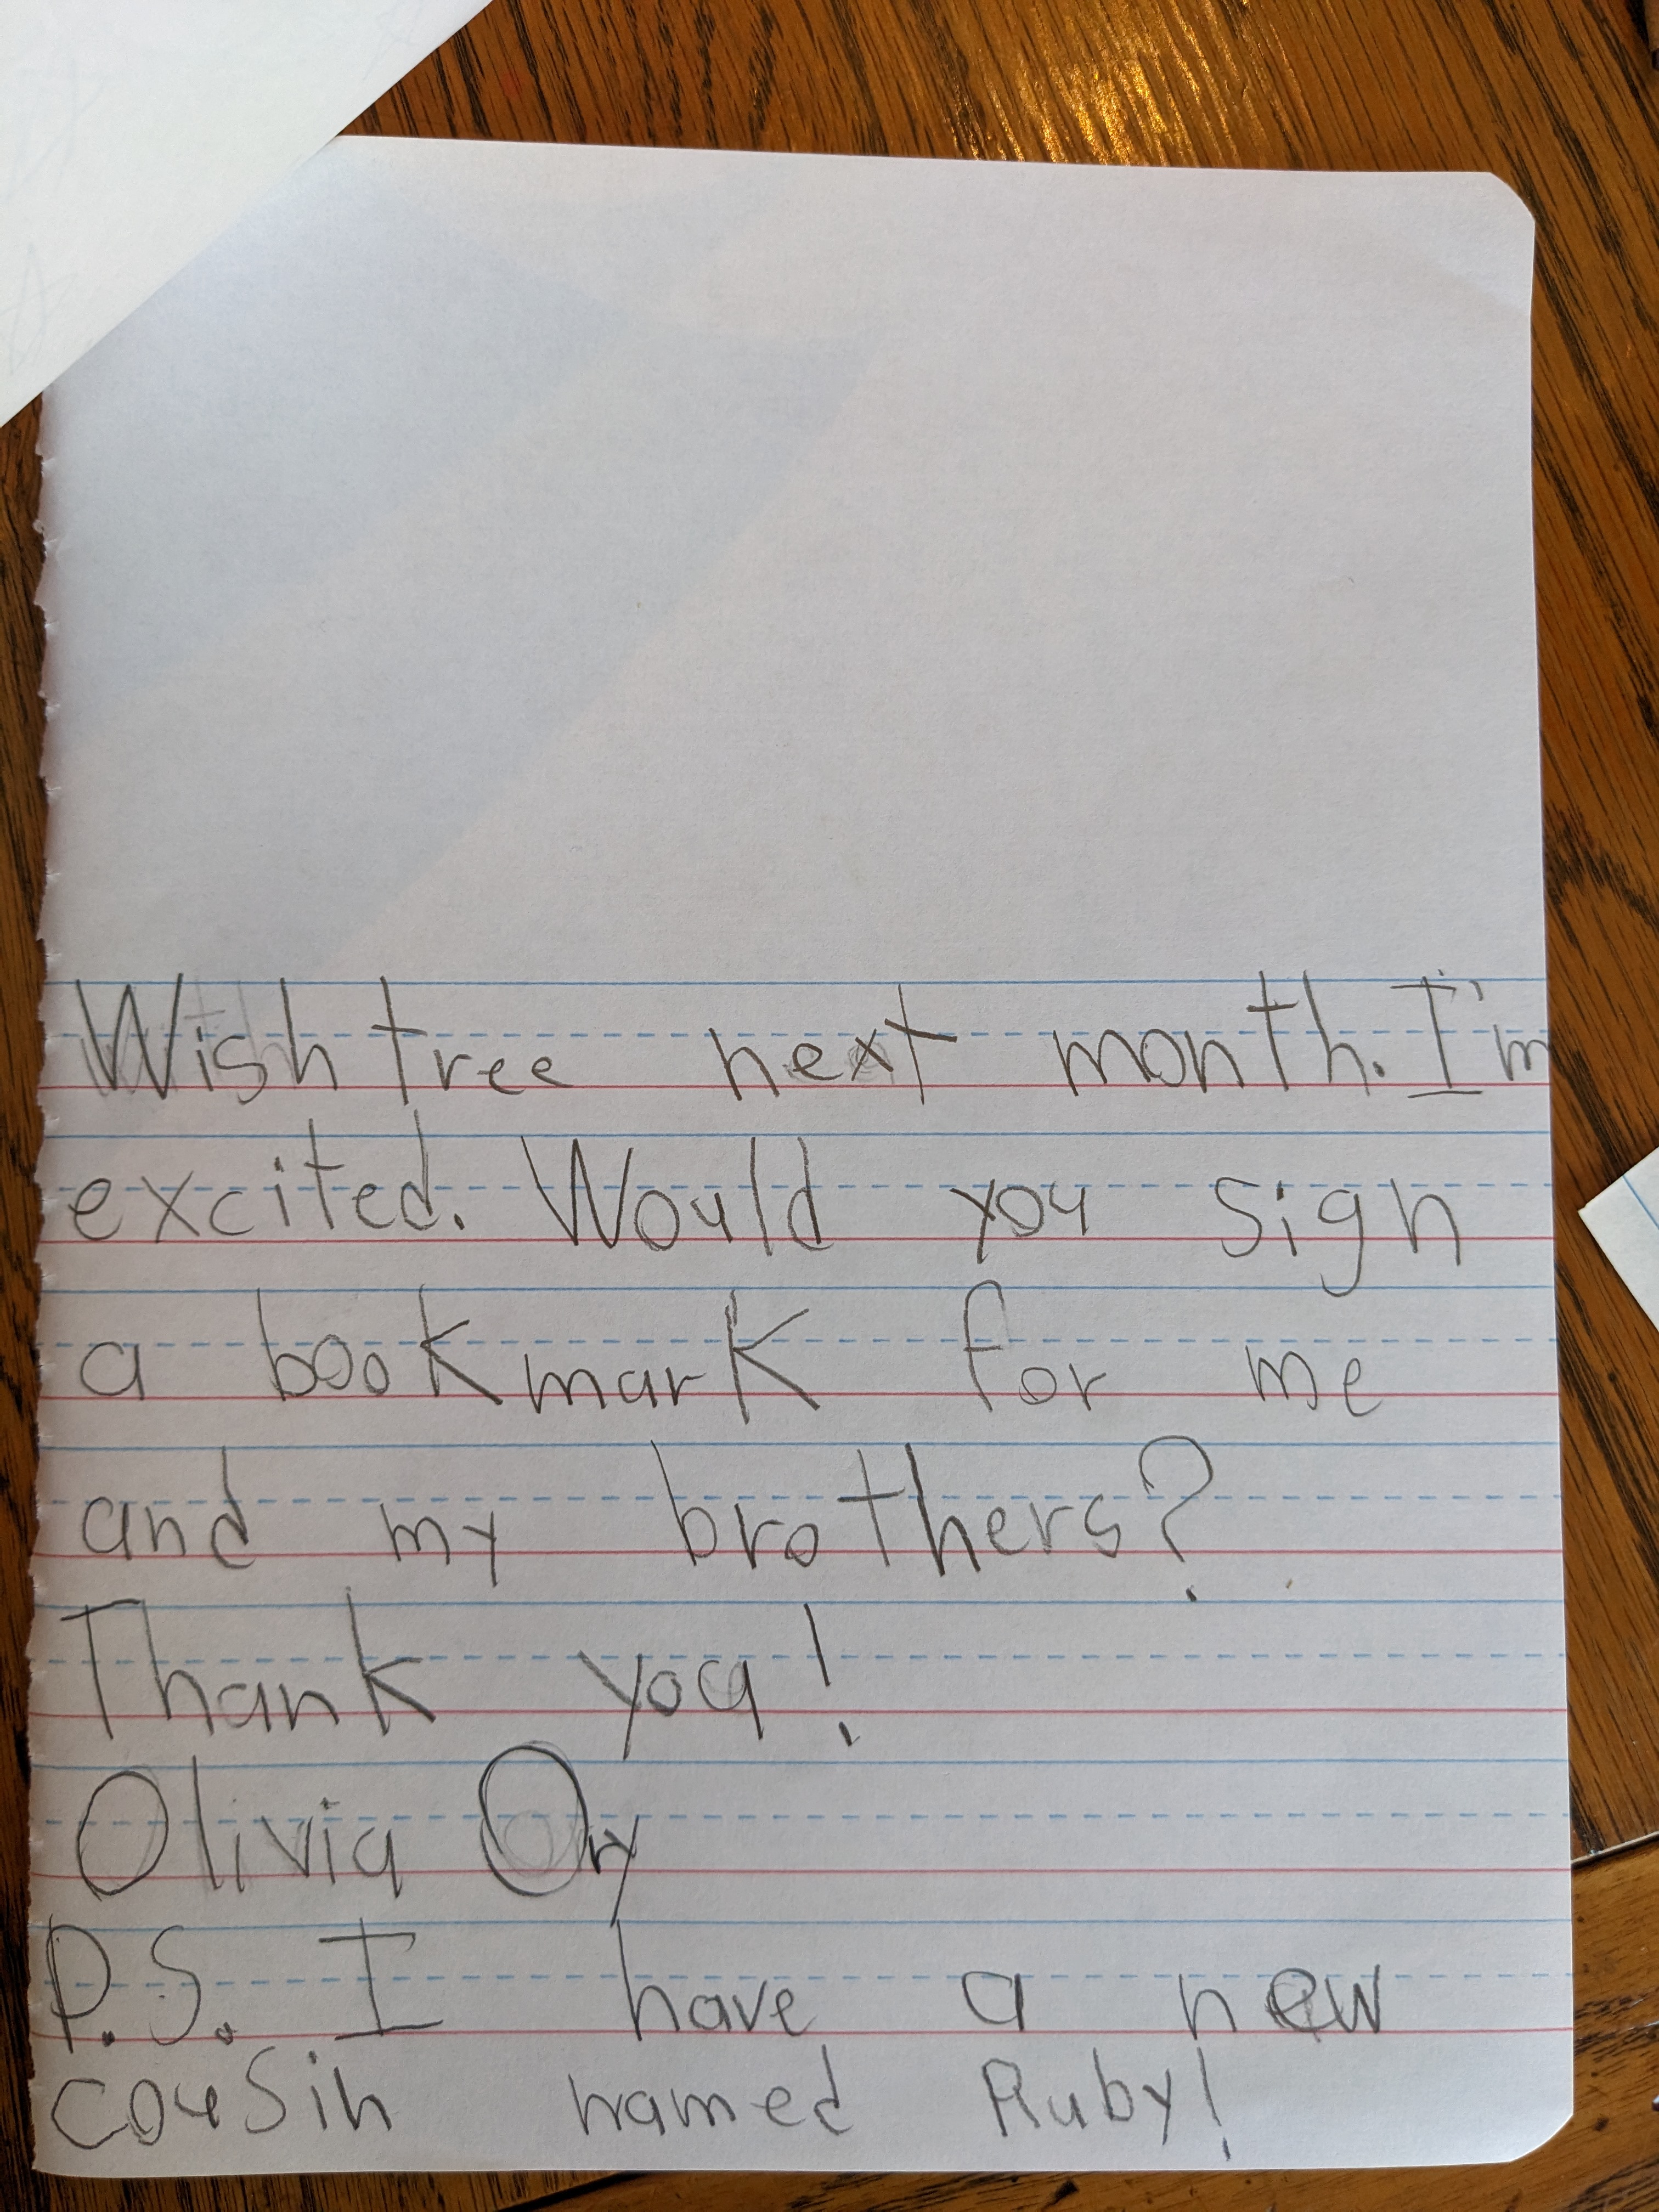 Wishtree next month. I'm
excited. Would you sign
a bookmark for me
and my brothers?
Thank you!
Olivia Ory
P.S. I have a new
cousin named Ruby!